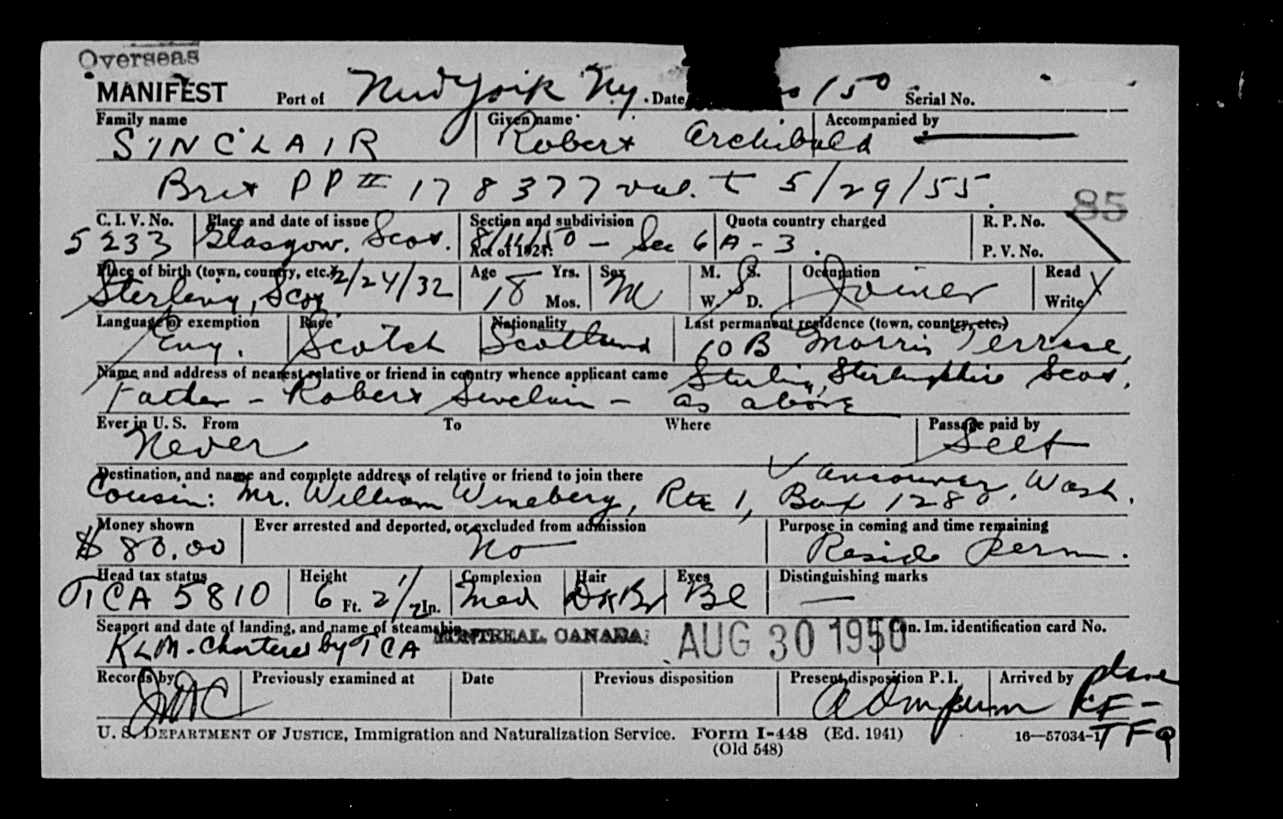 Overseas
MANIFEST Port of New York Ny. Date /50 Serial No.
Family name Given name Accompanied by
SINCLAIR Robert Archibald —
Brit PP # 178377 val. t 5/29/55.
85
C. I. V. No. Place and date of issue Section and subdivision Quota country charged R. P. No.
5233 Glasgow, Scot. 8/11/50 – Sec 6 A-3.
Act of 1924. P. V. No.
Place of birth (town, country, etc.) 2/24/32 Age Yrs. Sex M. S. Occupation Read
Sterling, Scot 18 Mos. M W. D. Joiner Write
Language or exemption Race Nationality Last permanent residence (town, country, etc.)
Eng. Scotch Scotland 60B Morris Terrace,
Name and address of nearest relative or friend in country whence applicant came Sterling, Sterlingshire Scot.
Father – Robert Sinclair – as above
Ever in U. S. From To Where Passage paid by
Never Self
Destination, and name and complete address of relative or friend to join there Vancouver, Wash.
Cousin: Mr. William Wineberg, Rte 1, Box 1280
Money shown Ever arrested and deported, or excluded from admission Purpose in coming and time remaining
$80.00 No Reside perm.
Head tax status Height Complexion Hair Eyes Distinguishing marks
TCA 5810 6 Ft. 2 1/2 In. Med Dk Br Bl —
Seaport and date of landing, and name of steamship MONTREAL, CANADA, AUG 30 1950 Can. Im. identification card No.
KLM - Chartered by TCA
Records by Previously examined at Date Previous disposition Present disposition P. I. Arrived by plane
JMC Adm perm KF-
TFQ
U. S. DEPARTMENT OF JUSTICE, Immigration and Naturalization Service. Form I-448 (Ed. 1941) 16—57034-1
(Old 548)